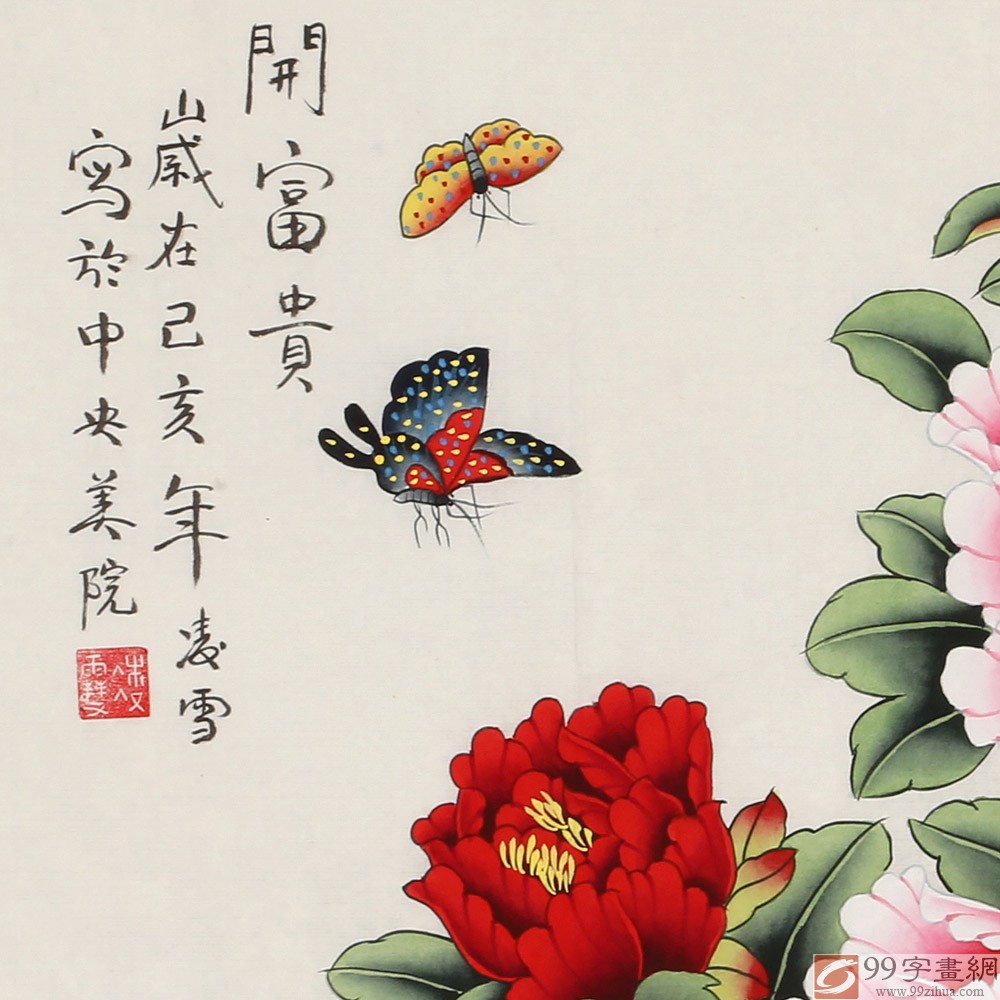 開富貴
歲在己亥年凌雪
寫於中央美院
99字畫網
www.99zihua.com